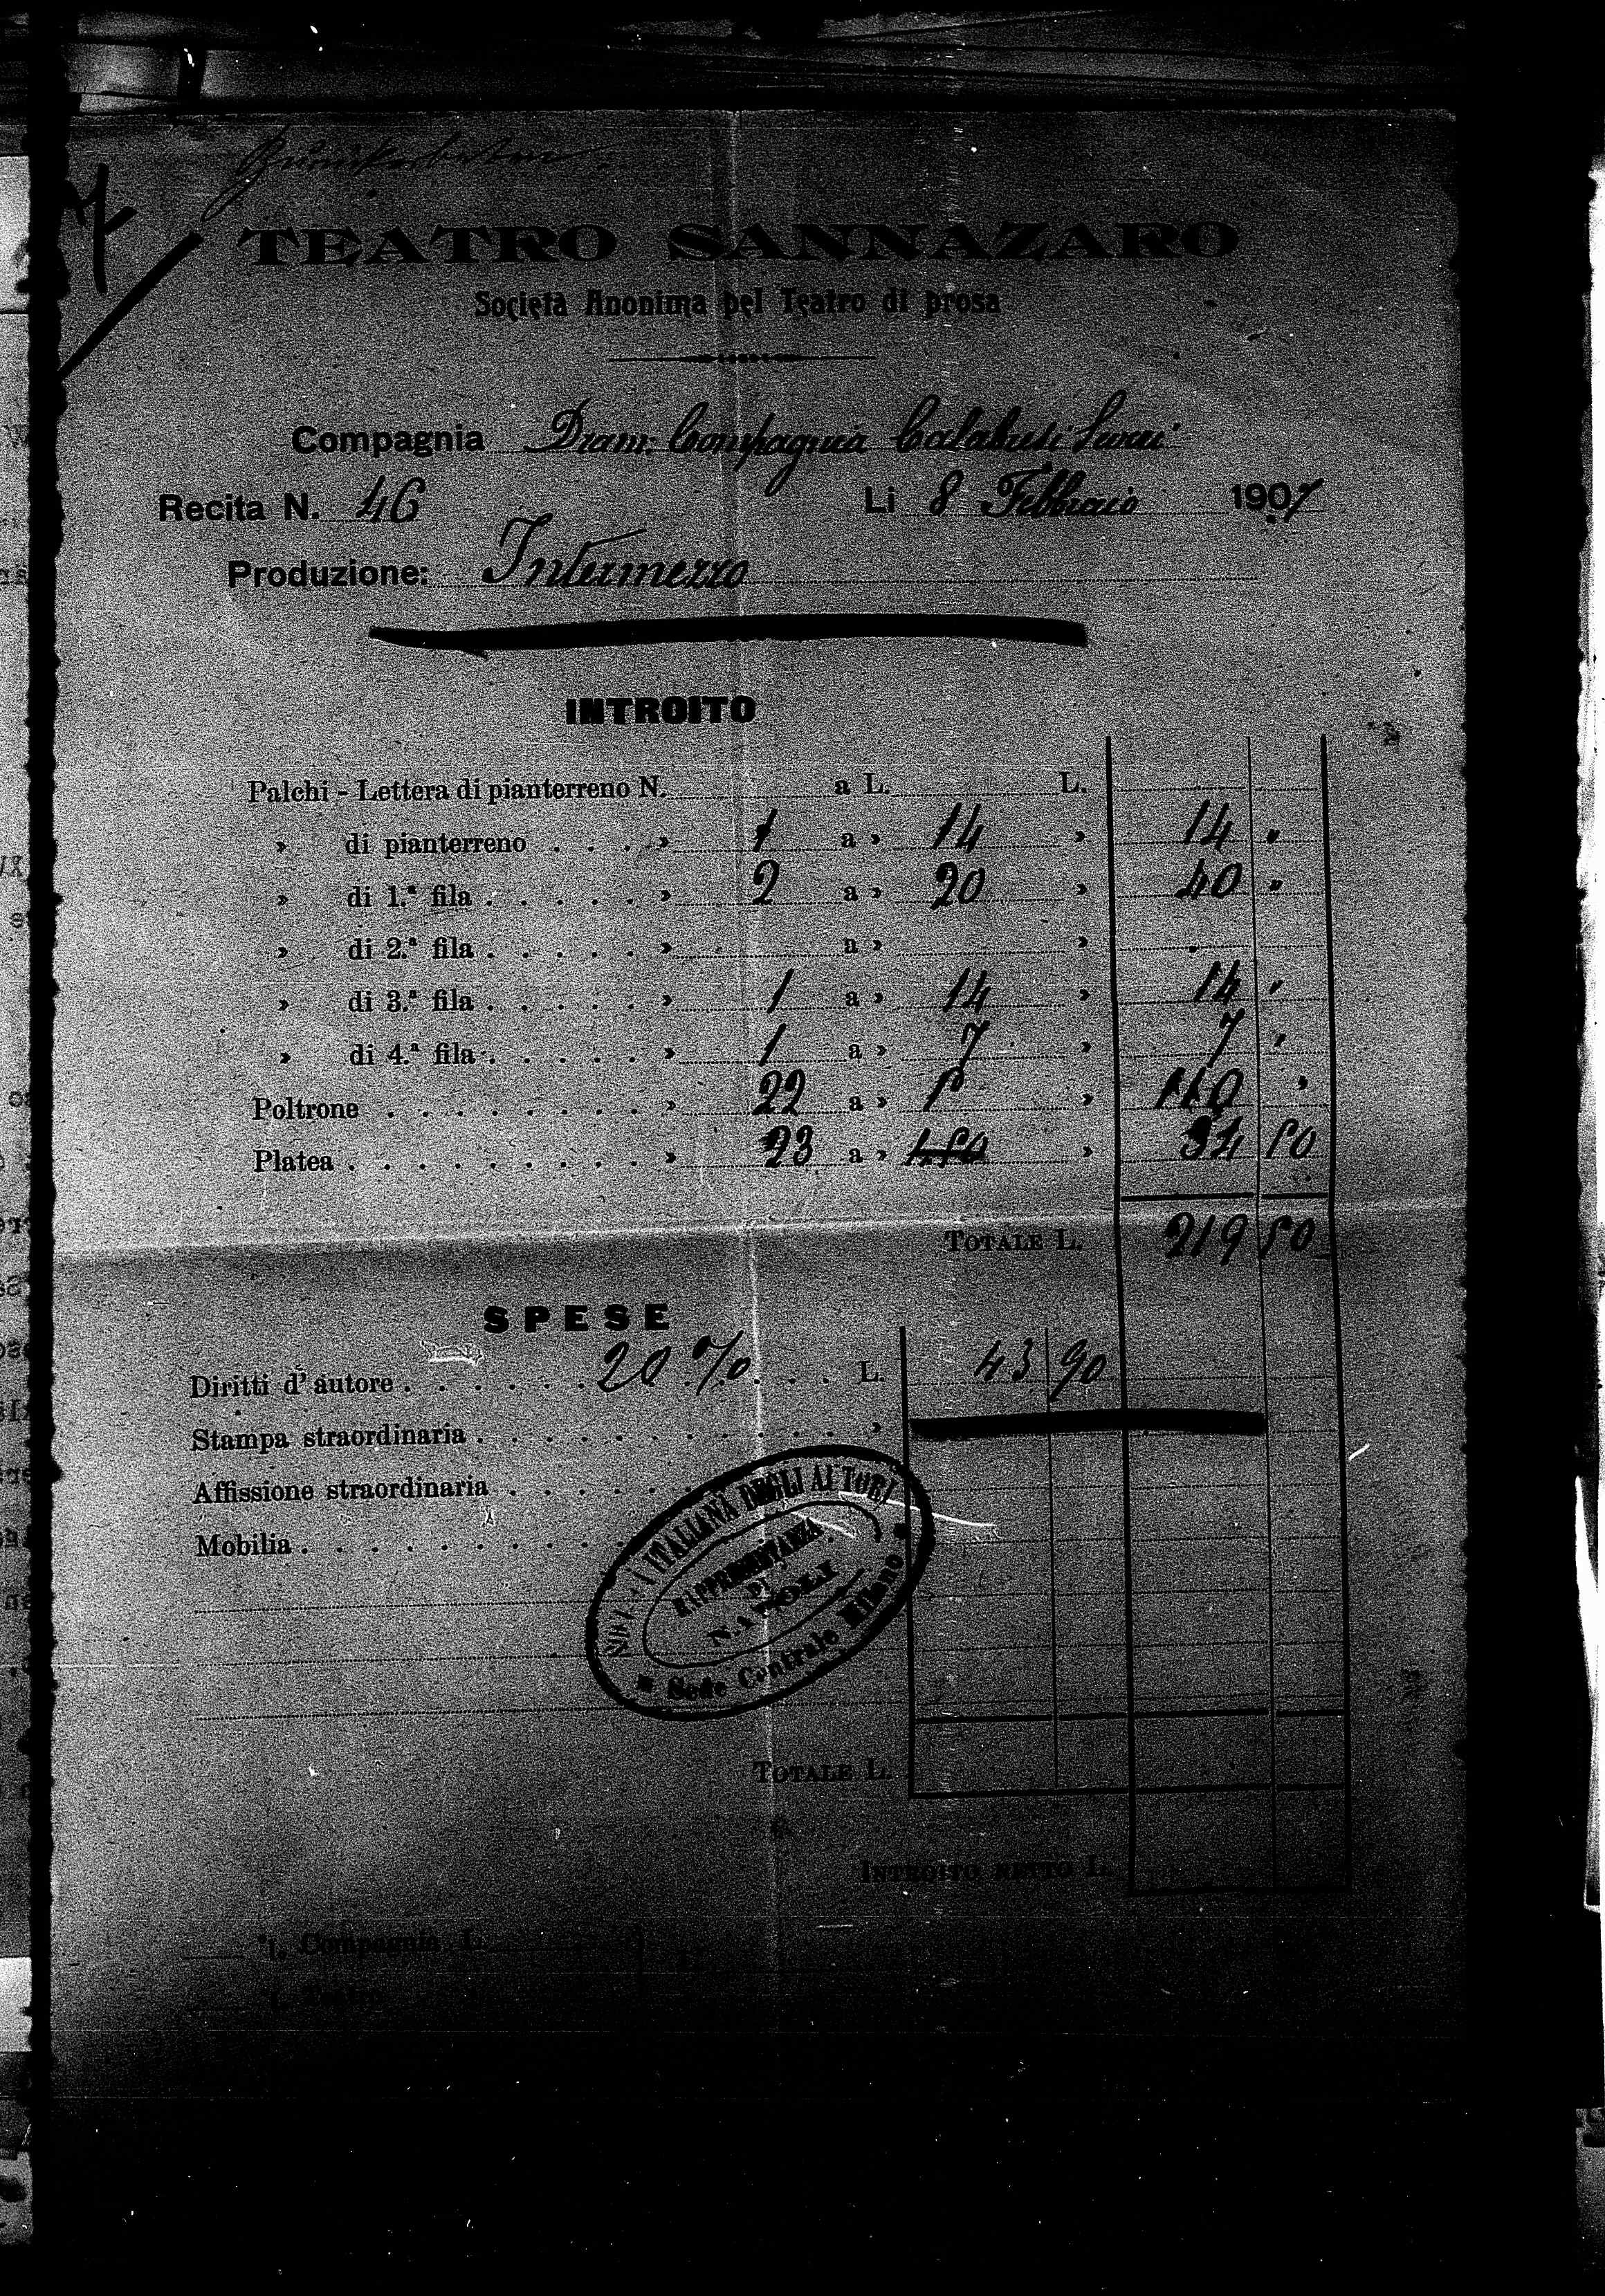 TEATRO SANNAZARO
Società Anonima pel Teatro di prosa
Compagnia Dram: Compagnia Calabresi
Recita N. 46 Li 8 Febbraio 1907
Produzione: Intermezzo
INTROITO
Palchi - Lettera di pianterreno N. a L. L.
» di pianterreno . . . . » 1 a » 14 » 14 "
» di 1.ª fila . . . . . » 2 a » 20 » 40 "
» di 2.ª fila . . . . . » a » »
» di 3.ª fila . . . . . » 1 a » 14 » 14 "
» di 4.ª fila . . . . . » 1 a » 7 » 7 "
Poltrone . . . . . . . . . » 22 a » 5 » 110 "
Platea . . . . . . . . . » 23 a » 1.50 » 34 50
TOTALE L. 219 50
SPESE
Diritti d'autore . . . . . . 20 % . . . L. 43 90
Stampa straordinaria . . . . . . . . . . . »
Affissione straordinaria . . . . .
Mobilia . . . . . . . . .
SOCIETÀ ITALIANA DEGLI AUTORI
RAPPRESENTANZA
DI
NAPOLI
Sede Centrale Milano
TOTALE L.
INTROITO NETTO L.
Compagnia L.